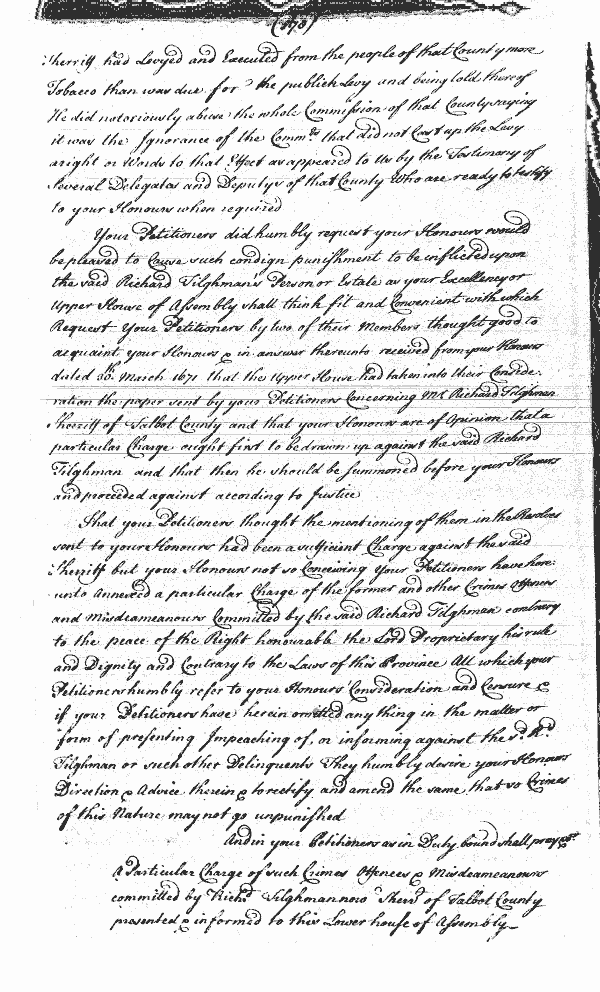 (178)
Sherriff had Levyed and Executed from the people of that County more
Tobacco than was due for the publick Levy and being told thereof
He did notoriously abuse the whole Commission of that County saying
it was the Ignorance of the Comm:rs that did not Cast up the Levy
aright or Words to that Effect as appeared to Us by the Testimony of
several Delegates and Deputys of that County Who are ready to testify
to your Honours when required
Your Petitioners did humbly request your Honours would
be pleased to Cause such condign punishment to be inflicted upon
the said Richard Tilghman's Person or Estate as your Excellency or
Upper House of Assembly shall think fit and Convenient with which
Request Your Petitioners by two of their Members thought good to
acquaint your Honours & in answer thereunto received from your Honours
dated 30th March 1671 that the Upper House had taken into their Conside-
ration the paper sent by your Petitioners Concerning Mr Richard Tilghman
Sherriff of Talbot County and that your Honours are of Opinion that a
particular Charge ought first to be drawn up against the said Richard
Tilghman and that then he should be summoned before your Honours
and proceeded against according to Justice
That your Petitioners thought the mentioning of them in the Resolves
sent to your Honours had been a sufficient Charge against the said
Sherriff but your Honours not so Conceiving Your Petitioners have here-
unto Annexed a particular Charge of the former and other Crimes Offences
and Misdemeanours Committed by the said Richard Tilghman contrary
to the peace of the Right honourable the Lord Proprietary his rule
and Dignity and Contrary to the Laws of this Province All which your
Petitioners humbly refer to your Honours' Consideration and Censure &
if your Petitioners have herein omitted any thing in the matter or
form of presenting Impeaching of, or informing against the sd Rd
Tilghman or such other Delinquents They humbly desire your Honours
Direction & Advice therein & to rectify and amend the same that so Crimes
of this Nature may not go unpunished
And in your Petitioners as in Duty bound shall pray &c
A Particular Charge of such Crimes Offences & Misdeameanours
committed by Richd Tilghman now Sherf of Talbot County
presented & informed to this Lower house of Assembly